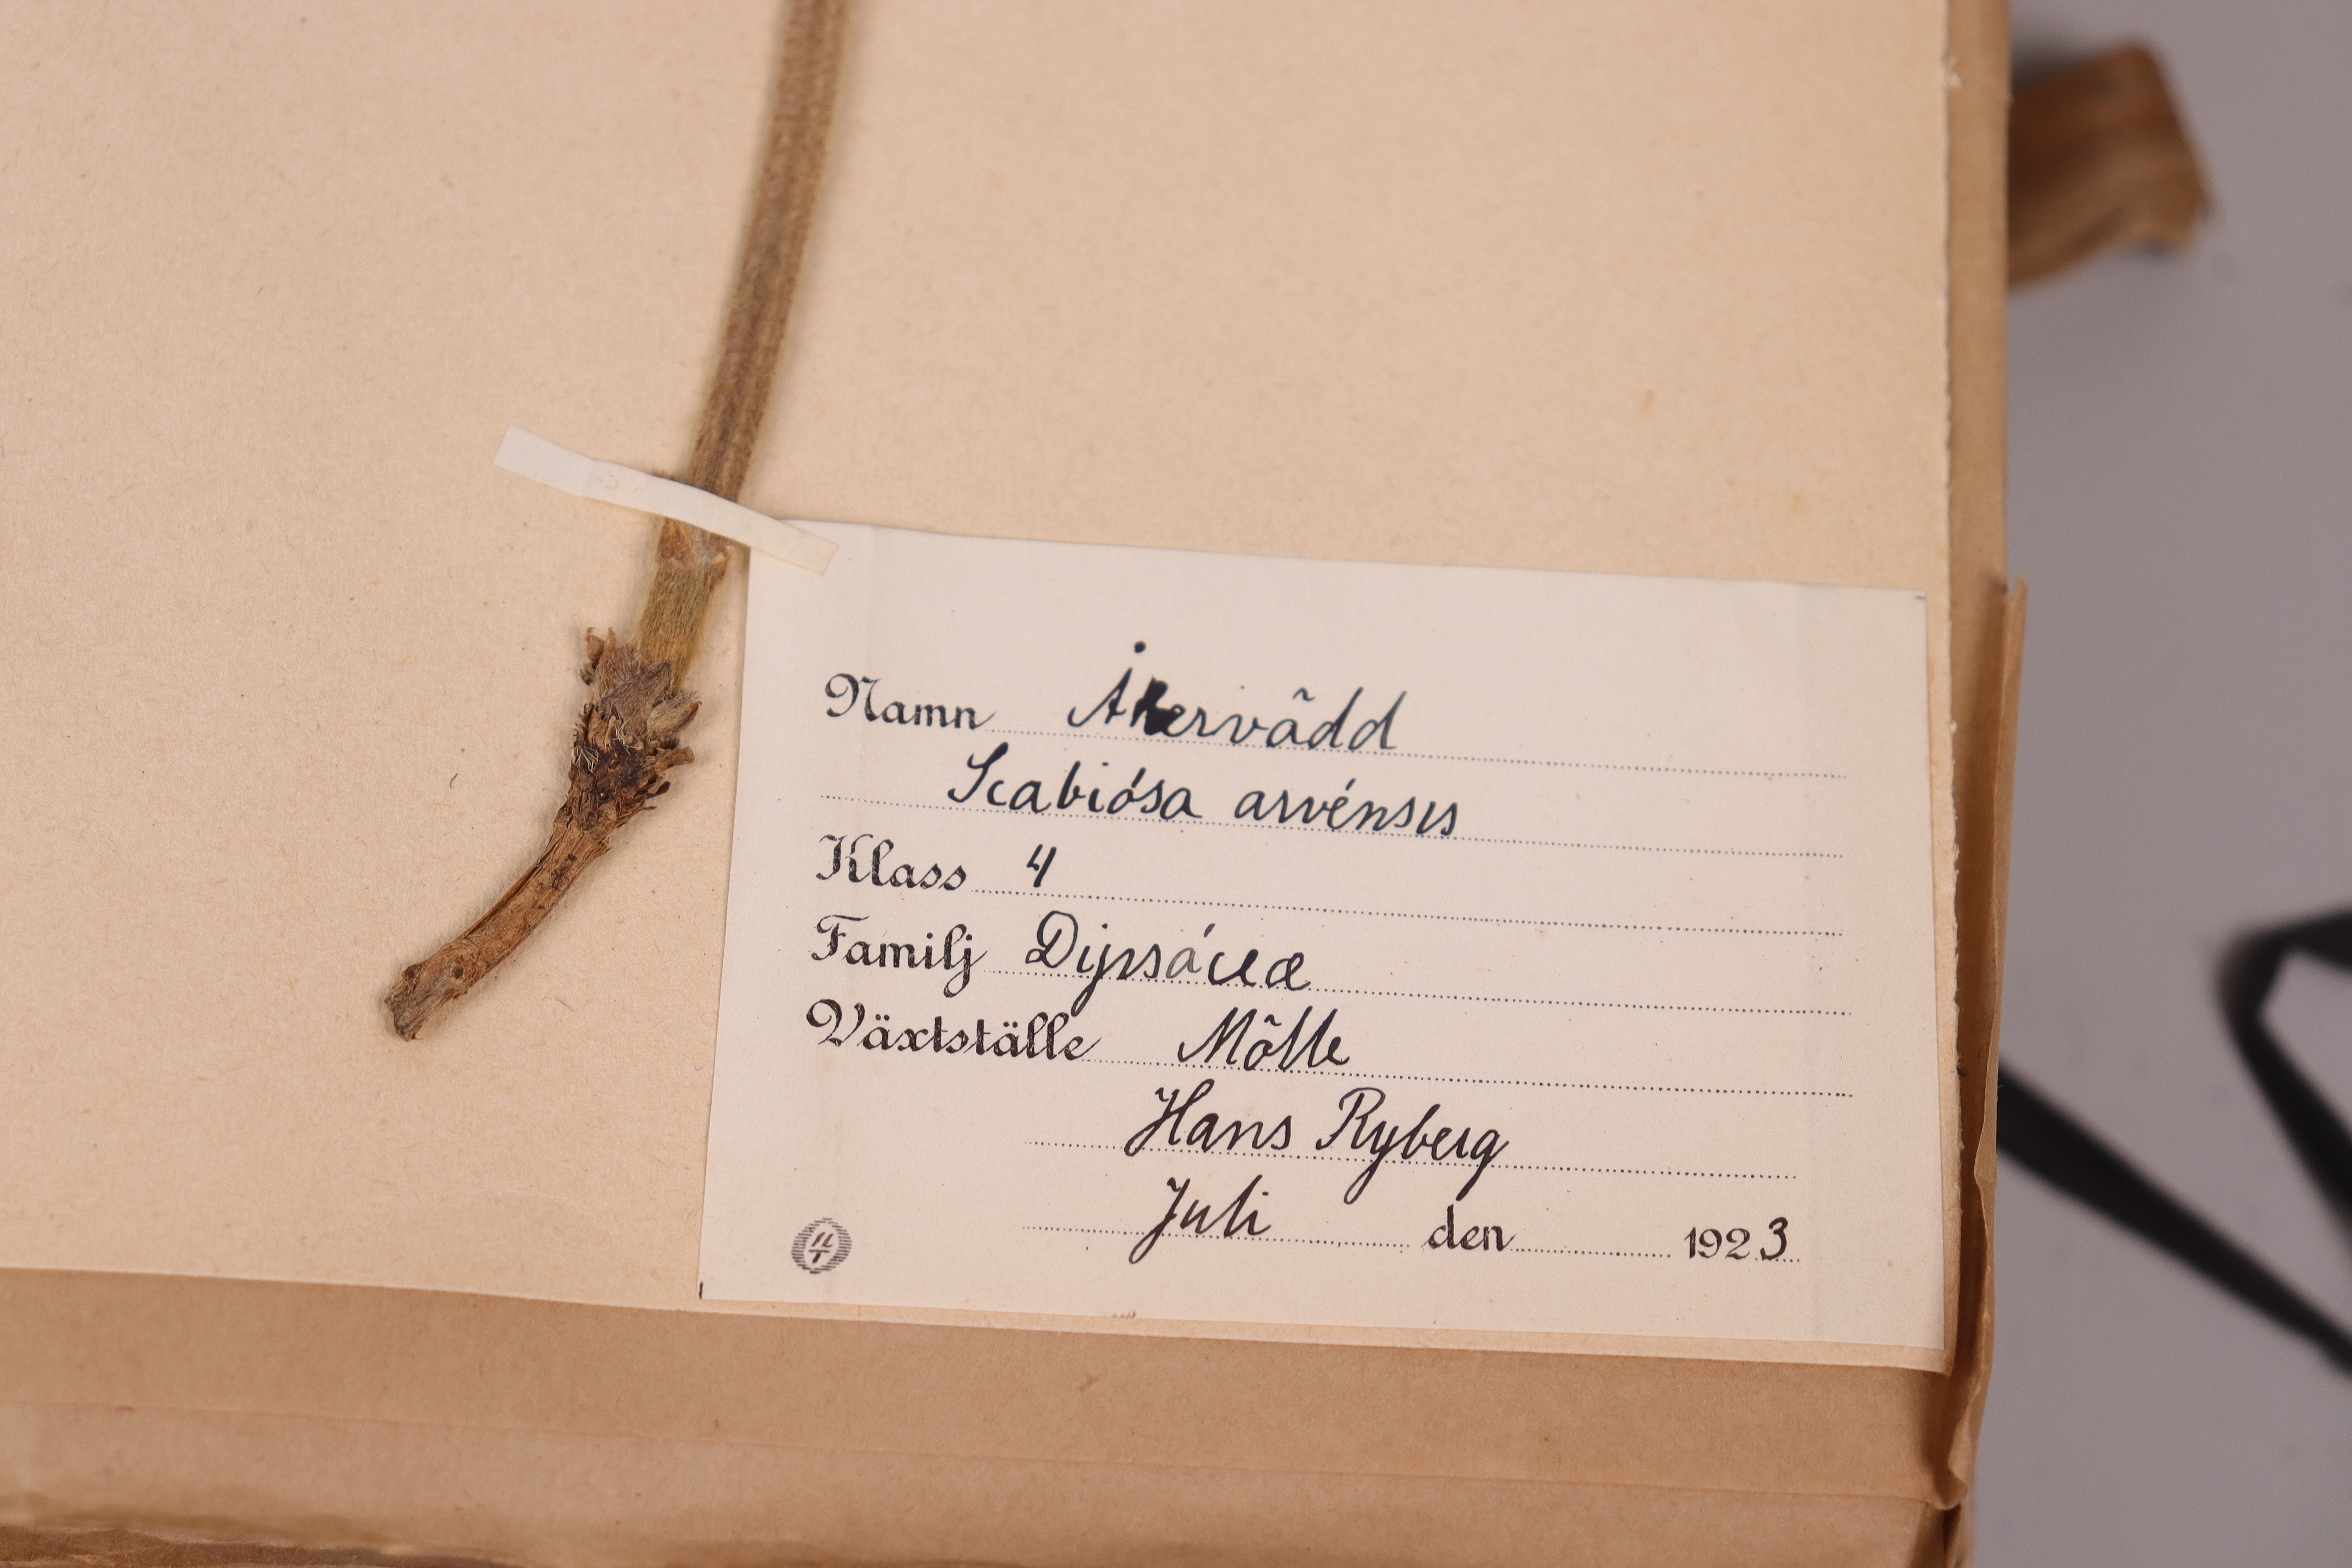 Namn Åkervädd
Scabiósa arvénsis
Klass 4
Familj Dipsáceæ
Växtställe Mölle
Hans Ryberg
Juli den 1923